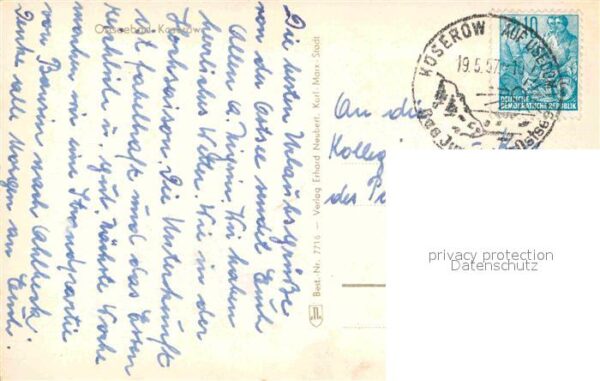 Ostseebad Koserow
Die besten Urlaubsgrüße
von der Ostsee sendet Euch
allen A. Wir haben
herrliches Wetter. Wie in der
Hochsaison. Die Unterkunft
ist fabelhaft und das Essen
reichlich u. gut. Nächste Woche
machen wir eine Strandpartie
von Bansin nach Ahlbeck.
Denke alle Morgen an Euch.
Best. Nr. 7716 — Verlag Erhard Neubert, Karl-Marx-Stadt
An die
Kolleg
des
KOSEROW AUF USEDOM
19.5.57
10 5
DEUTSCHE
DEMOKRATISCHE REPUBLIK
privacy protection
Datenschutz